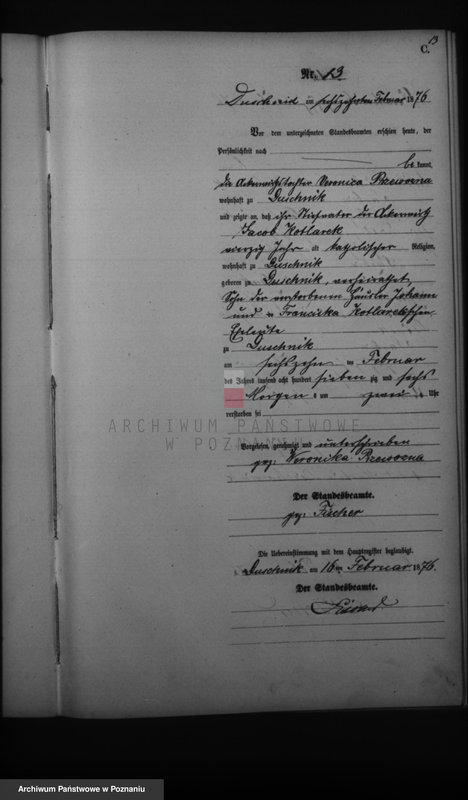 13
C.
Nr. 13
Duschnik am sechszehnten Februar 1876
Vor dem unterzeichneten Standesbeamten erschien heute, der
Persönlichkeit nach
be kannt,
die Ackerwirthstochter Veronica
wohnhaft zu Duschnik
und zeigte an, daß ihr Stiefvater der Ackerwirth
Jacob Kotlarek
vierzig Jahr alt katholischer Religion,
wohnhaft zu Duschnik
geboren zu Duschnik, verheirathet,
Sohn der verstorbenen Häusler Johann
und Franciska Kotlarekschen
Eheleute
zu Duschnik
am sechszehn ten Februar
des Jahres tausend acht hundert sieben zig und sechs
Morgens um zwei Uhr
verstorben sei
ARCHIWUM PAŃSTWOWE
W POZNANIU
Vorgelesen, genehmigt und unterschrieben
gez: Veronika
Der Standesbeamte.
gez: Fischer
Die Uebereinstimmung mit dem Hauptregister beglaubigt.
Duschnik am 16ten Februar 1876.
Der Standesbeamte.
Archiwum Państwowe w Poznaniu